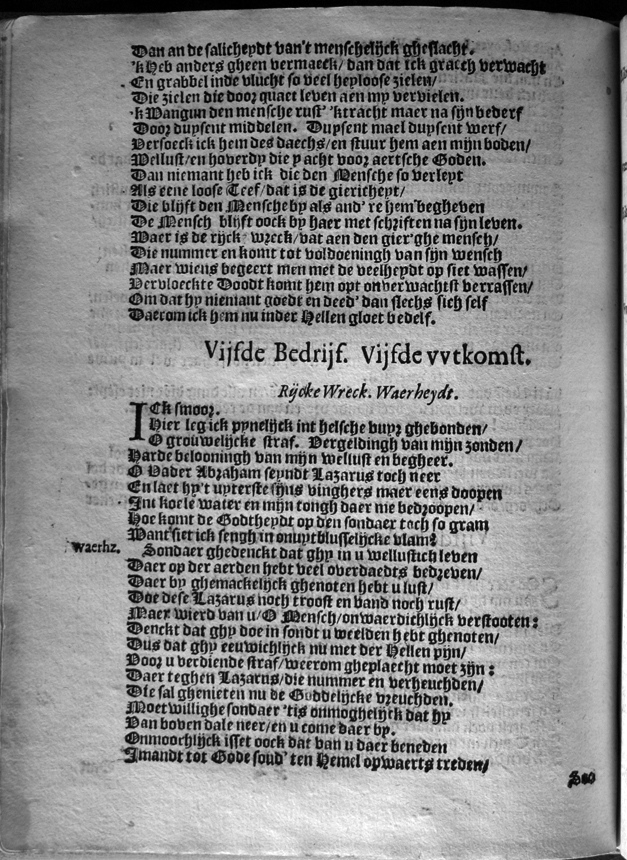 Dan an de salicheydt van't menschelijck gheslacht.
'k Heb anders gheen vermaeck/ dan dat ick graech verwacht
En grabbel inde vlucht so veel heyloose zielen/
Die zielen die door quaet leven aen my vervielen.
'k Wangun den mensche rust' 'ktracht maer na sijn bederf
Door duysent middelen. Duysent mael duysent werf/
Versoeck ick hem des daechs/en stuur hem aen mijn boden/
Wellust/en hoverdy die y acht voor aertsche Goden.
Dan niemant heb ick die den Mensche so verleyt
Als eene loose Teef/dat is de giericheyt/
Die blijft den Mensche by als and're hem begheven
De Mensch blijft oock by haer met schriften na sijn leven.
Waer is de rijck wreck/vat aen den gier'ghe mensch/
Die nummer en komt tot voldoeningh van sijn wensch
Maer wiens begeert men met de veelheydt op siet wassen/
Vervloeckte Doodt komt hem opt onverwachtst verrassen/
Om dat hy niemant goedt en deed' dan slechs sich self
Daerom ick hem nu inder Hellen gloet bedelf.
Vijfde Bedrijf. Vijfde vvtkomst.
Rijcke Wreck. Waerheydt.
ICk smoor.
Hier leg ick pynelijck int helsche vuyr ghebonden/
O grouwelijcke straf. Vergeldingh van mijn zonden/
Harde belooningh van mijn wellust en begheer.
O Vader Abraham seyndt Lazarus toch neer
En laet hy't uyterste sijns vinghers maer eens doopen
Int koele water en mijn tongh daer me bedroopen/
Hoe komt de Godtheydt op den sondaer toch so gram
Want siet ick sengh in onuytblusselijcke vlam?
Waerh. Sondaer ghedenckt dat ghy in u wellustich leven
Daer op der aerden hebt veel overdaedts bedreven/
Daer by ghemackelijck ghenoten hebt u lust/
Doe dese Lazarus noch troost en vand noch rust/
Maer wierd van u/O Mensch/onwaerdichlijck verstooten:
Denckt dat ghy doe in sondt u weelden hebt ghenoten/
Dus dat ghy eeuwichlijck nu met der Hellen pijn/
Voor u verdiende straf/weerom gheplaecht moet zijn:
Daer teghen Lazarus/die nummer en verheuchden/
Die sal ghenieten nu de Goddelijcke vreuchden.
Moetwillighe sondaer 'tis onmoghelijck dat hy
Van boven dale neer/en u come daer by.
Onmoochlijck isset oock dat van u daer beneden
Imandt tot Gode soud' ten Hemel opwaerts treden/